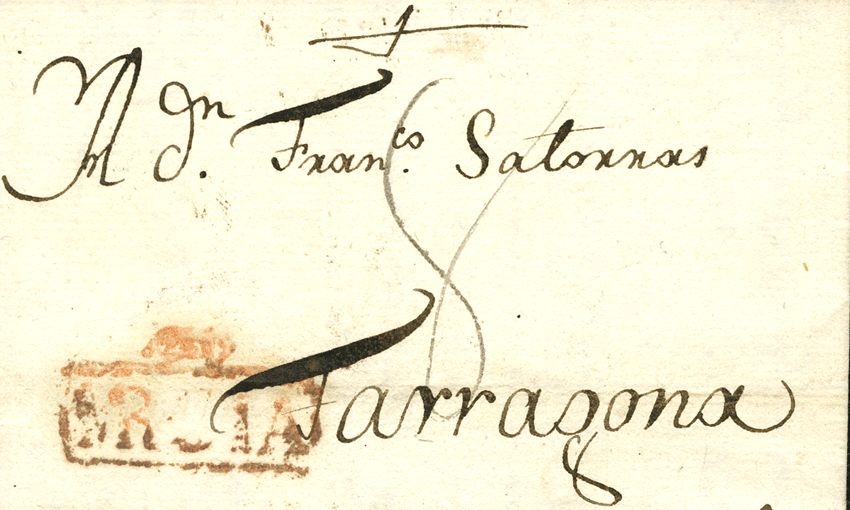 A Dn. Franco. Satorras
8
Tarragona